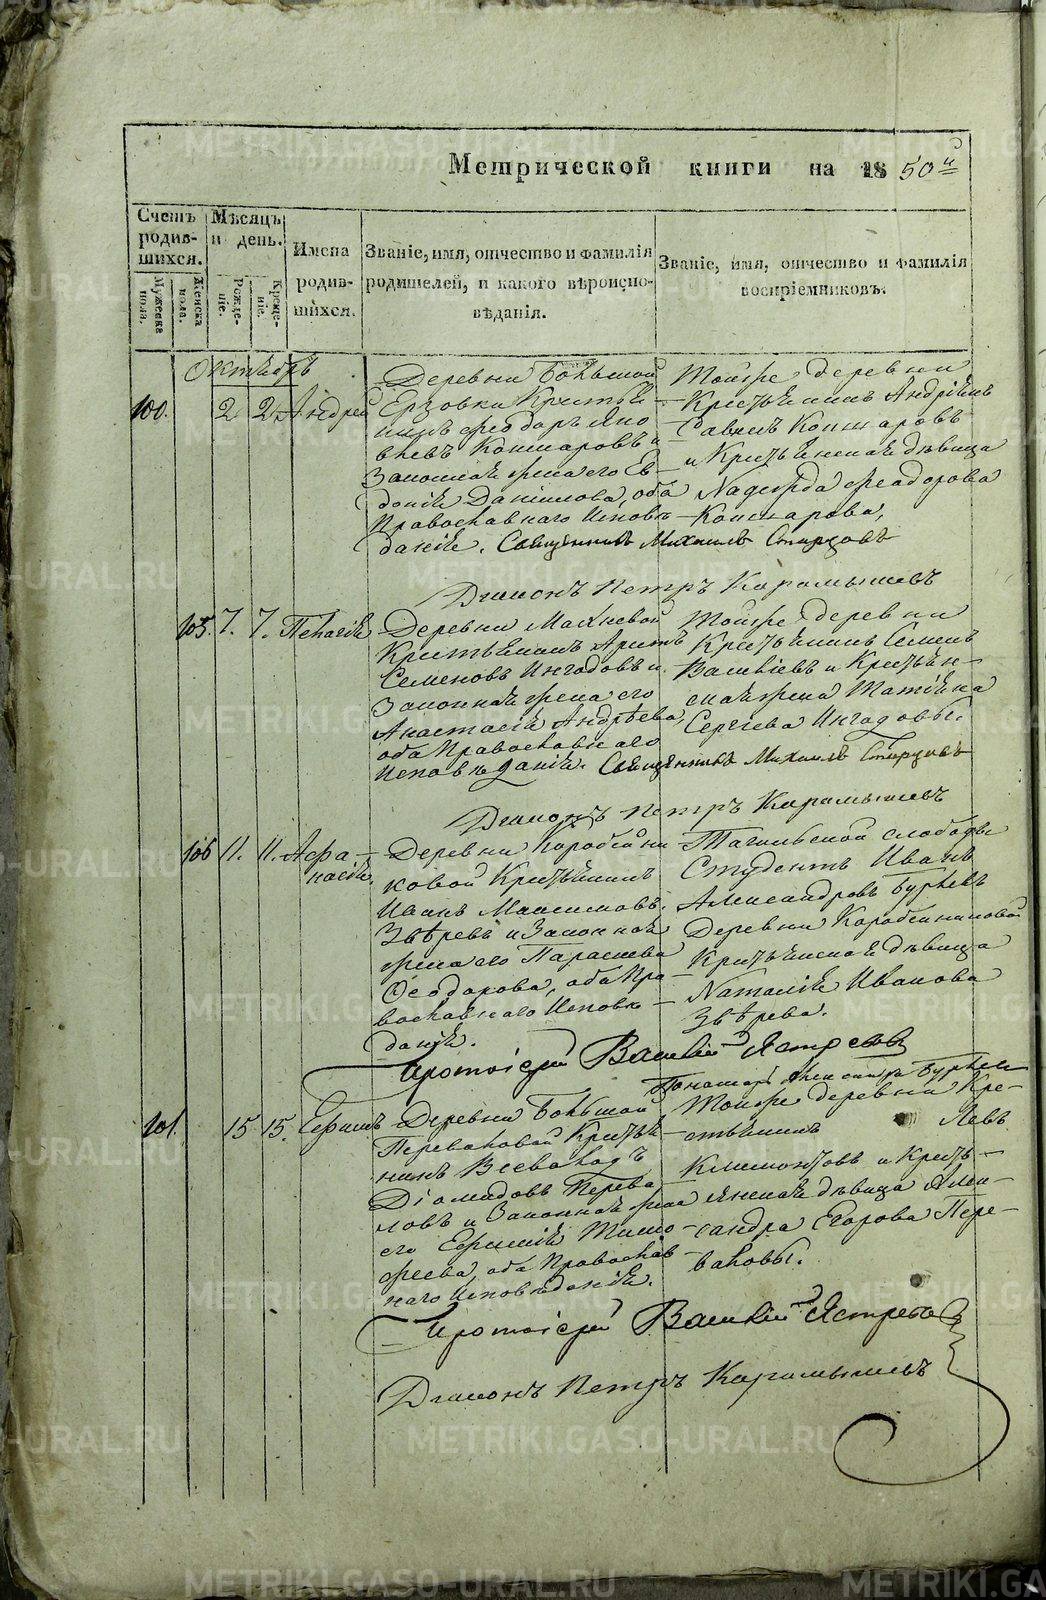 Метрической книги на 1850й
Счетъ родив-шихся.
Мужеска пола.
Женска пола.
Мѣсяцъ и день.
Рожде-ніе.
Креще-ніе.
Имена родив-шихся.
Званіе, имя, отчество и фамилія родителей, и какого вѣроиспо-вѣданія.
Званіе, имя, отчество и фамилія воспріемниковъ.
Октябрь
100. 2 2. Андрей
Деревни Большой
Ерзовки Крестья-
нинъ Феодоръ Яко
влевъ Кошкаровъ и
Законная жена его Ев-
докія Даніилова, оба
Православнаго Исповѣ-
данія.
Тойже деревни
Крестьянинъ Андріянъ
Савинъ Кошкаровъ
и Крестьянская дѣвица
Надежда Феодорова
Кошкарова,
Священникъ Михаилъ Старцовъ
Діаконъ Петръ Карамышевъ
105. 7. 7. Пелагія
Деревни Махневой
Крестьянинъ
Семеновъ Ингодовъ и
Законная жена его
Анастасія Андрѣева,
оба Православнаго
Исповѣданія.
Тойже деревни
Крестьянинъ Семенъ
Васильевъ и Крестьян-
ская жена Татіяна
Сергіева Ингодовы.
Священникъ Михаилъ Старцовъ
Діаконъ Петръ Карамышевъ
106 11. 11. Афа-
насія.
Деревни Коробейни
ковой Крестьянинъ
Иванъ Максимовъ
Звѣревъ и Законная
жена его Параскева
Ѳеодорова, оба Пра-
вославнаго Исповѣ-
данія.
Тагильской слободы
Студентъ Иванъ
Александровъ Бурлевъ
Деревни Коробейниковой
Крестьянская дѣвица
Наталія Иванова
Звѣрева.
Протоіерей Василій Ястребовъ
Пономарь Александръ Бурлевъ
101. 15 15. Ефимъ
Деревни Большой
Переваловой Крестья-
нинъ Всеволодъ
Діомидовъ Перева-
ловъ и Законная жена
его Ефимія Тимо-
феева, оба Православ-
наго Исповѣданія.
Тойже деревни Кре-
стьянинъ Левъ
Климонтовъ и Кресть-
янская дѣвица Алек-
сандра Егорова Пере-
валовы.
Протоіерей Василій Ястребовъ
Діаконъ Петръ Карамышевъ
METRIKI.GASO-URAL.RU